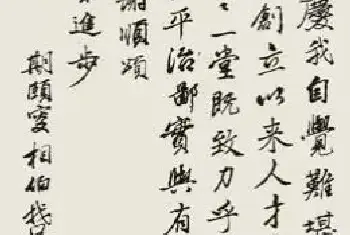 慶我自覺難堪
創立以来人才
一堂既致力乎
平治鄙實與有
謝順頌
進步
期頤叟相伯拜